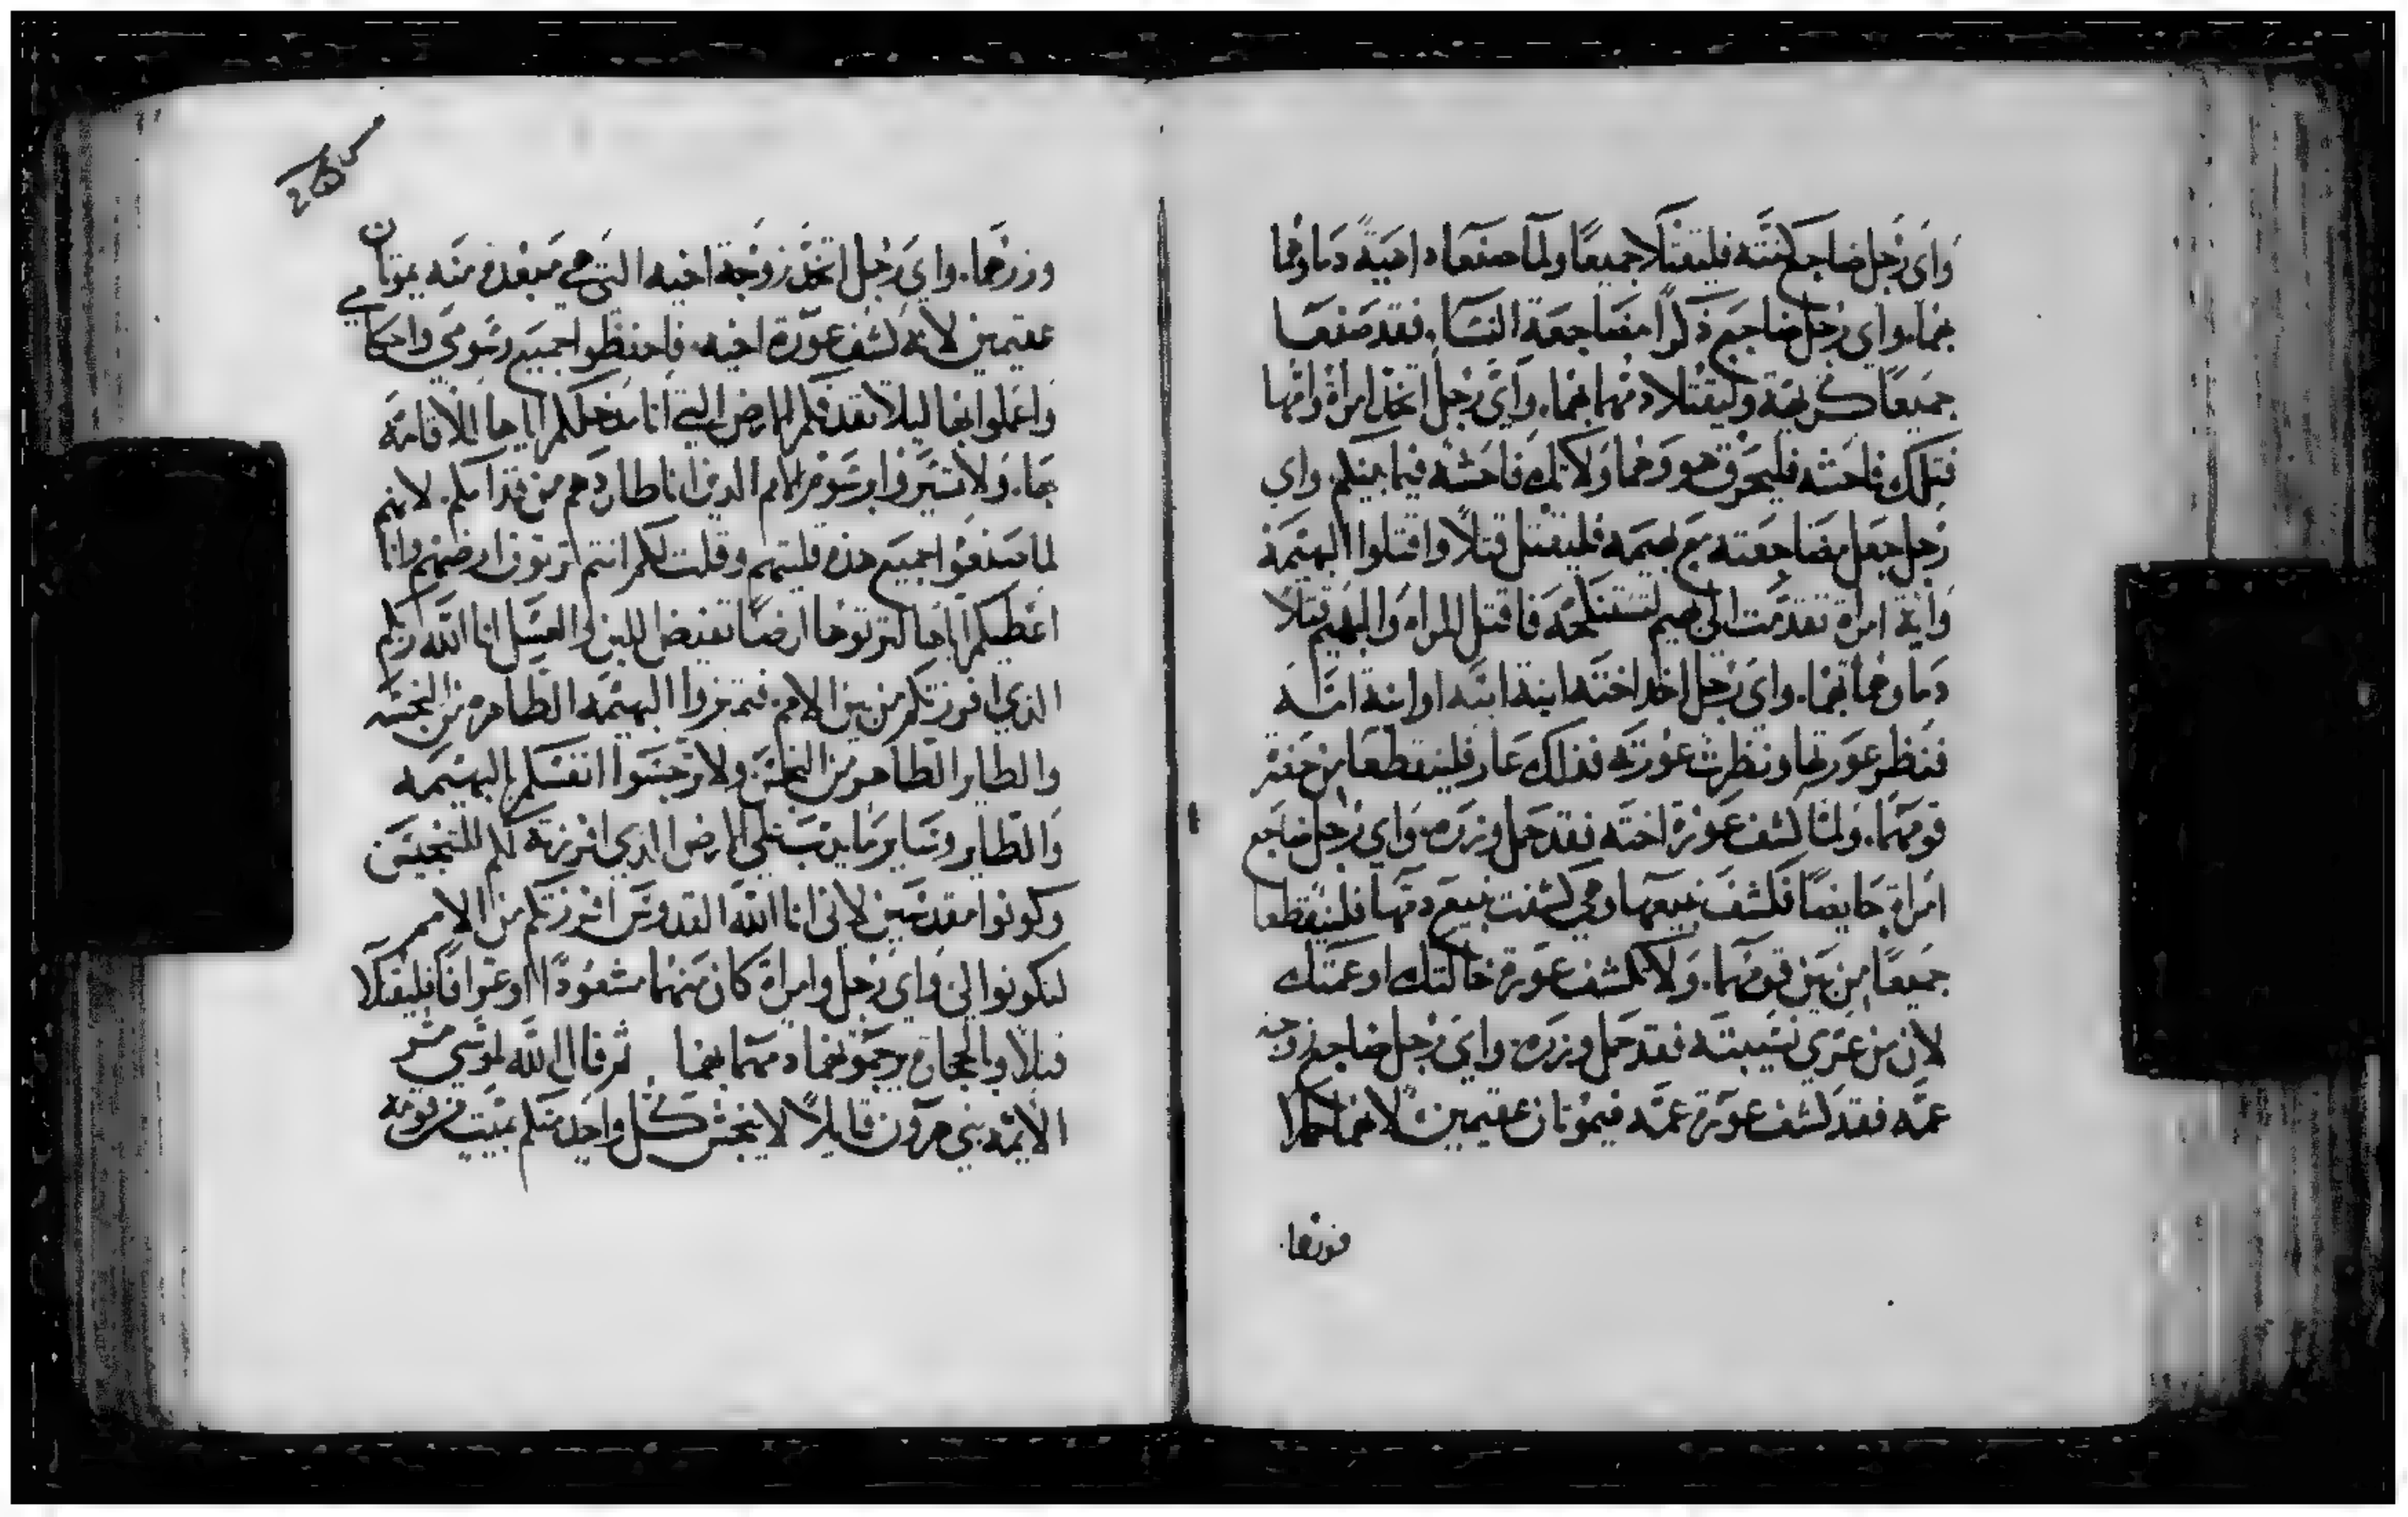 وَاي رَجل ضاجع كنته فليقتلا جميعًا ولما صنعاه داهية دماوهما
بهما. واي رَجل ضاجع ذكرًا مضاجعة النسَا. فقد صَنعَا
جميعًا كريهة وليقتلا دمهما بهما. وَاي رَجل اتخذ امراة وامها
فتلك فاحشه فليحرق هو وهما ولا تك فاحشه فيما بينكم. واي
رَجل جعل مضاجعته مع بهيمه فليقتل قتلاً واقتلوا البهيمة
وَاية امراة تقدمت الى بهيم فاقتل المراه والبهيم قتلا
دماوهما بهما. واي رَجل اخذ اخته ابنة ابيه او ابنة امه
فنظر عورتها ونظرت عورته فذاك عَار فلينقطعا من حضرة
قومهما. ولما كشف عورة اخته فقد حمل وزره. واي رجل ضاجع
امراة حايضًا فكشف نبيعها وهي كشفت نبيع دمها فلينقطعا
جميعًا من بين قومهما. ولا تكشف عورة خالتك او عمتك
لان من عرى نسيبته فقد حمل وزره. واي رَجل ضاجع زوجة
عمه فقد كشف عورة عمه فيموتان عقيمين لانهما حملا
وزرهما. واي رَجل اتخذ زوجة اخيه التي هي مبعدة منه يموتان
عقيمين لانه كشف عورة اخيه. فاحفظوا جميع رسومي واحكامي
واعملوا بها ليلا تقذفكم الارض التي انا مدخلكم اياها للاقامة
بها. ولا تسيروا برسوم الامم الذين انا طاردهم من قدامكم. لانهم
لما صنعوا جميع هذه قليتهم وقلت لكم انتم ترثون ارضهم وانا
اعطيكم اياها لترثوها ارضًا تفيض اللبن والعسل انا الله ربكم
الذي افرزتكم من بين الامم. فتميزوا البهيمة الطاهرة من النجسه
والطاير الطاهر من النجس ولا ترجسوا انفسكم بالبهيمه
والطاير وساير ما يدب على الارض الذي افرزته لكم للتنجيس
وكونوا مقدسين لاني انا الله القدوس افرزتكم من الامم
لتكونوا لي واي رَجل وامراة كان منهما مشعوذًا او عرافًا فليقتلا
قتلاً وبالحجارة يرجموهما دمهما بهما. ثم قال الله لموسي مر
الايمه بني هرون قايلاً لا ينجس كل واحد منكم بميت من قومه